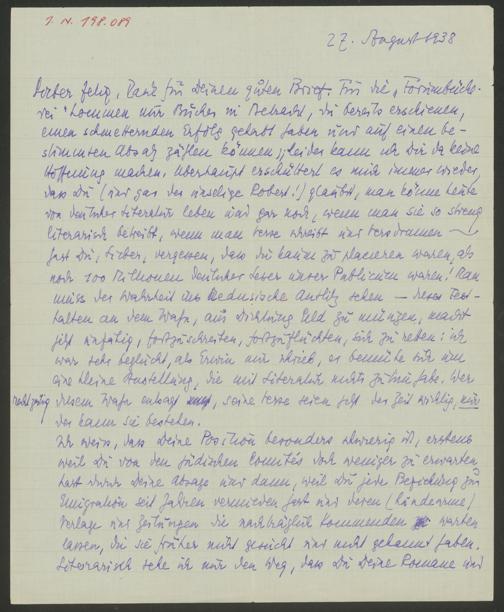 I. N. 198.089
27. August 1938
Lieber Felix, Dank für Deinen guten Brief. Für die „Forumbüche-
rei" kommen nur Bücher in Betracht, die bereits erschienen,
einen schmetternden Erfolg gehabt haben und auf einen be-
stimmten Absatz zählen können; leider kann ich Dir da keine
Hoffnung machen. Überhaupt erschüttert es mich immer wieder,
dass Du (und gar der unselige Robert!) glaubst, man könne heute
von deutscher Literatur leben und gar noch, wenn man sie so streng
literarisch betreibt, wenn man Verse schreibt und Versdramen —
hast Du, Lieber, vergessen, dass die kaum zu placieren waren, als
noch 100 Millionen deutscher Leser unser Publicum waren! Man
muss der Wahrheit ins Medusische Antlitz sehen — dieses Fest-
halten an dem Wahn, aus Dichtung Geld zu münzen, macht
jetzt unfähig, fortzuschreiten, fortzuflüchten, sich zu retten; ich
war sehr beglückt, als Erwin mir schrieb, er bemühe sich um
eine kleine Anstellung, die mit Literatur nichts zutun habe. Wer
rechtzeitig diesem Wahn entsagt, seine Verse seien jetzt der Zeit wichtig, nur
der kann sie bestehen.
Ich weiss, dass Deine Position besonders schwierig ist, erstens
weil Du von den jüdischen Comités doch weniger zu erwarten
hast durch Deine Absage und dann, weil Du jede Beziehung zur
Emigration seit Jahren vermieden hast und deren (händearme)
Verlage und Zeitungen die nachträglich Kommenden warten
lassen, die sie früher nicht gesucht und nicht gekannt haben.
Literarisch sehe ich nur den Weg, dass Du Deine Romane und